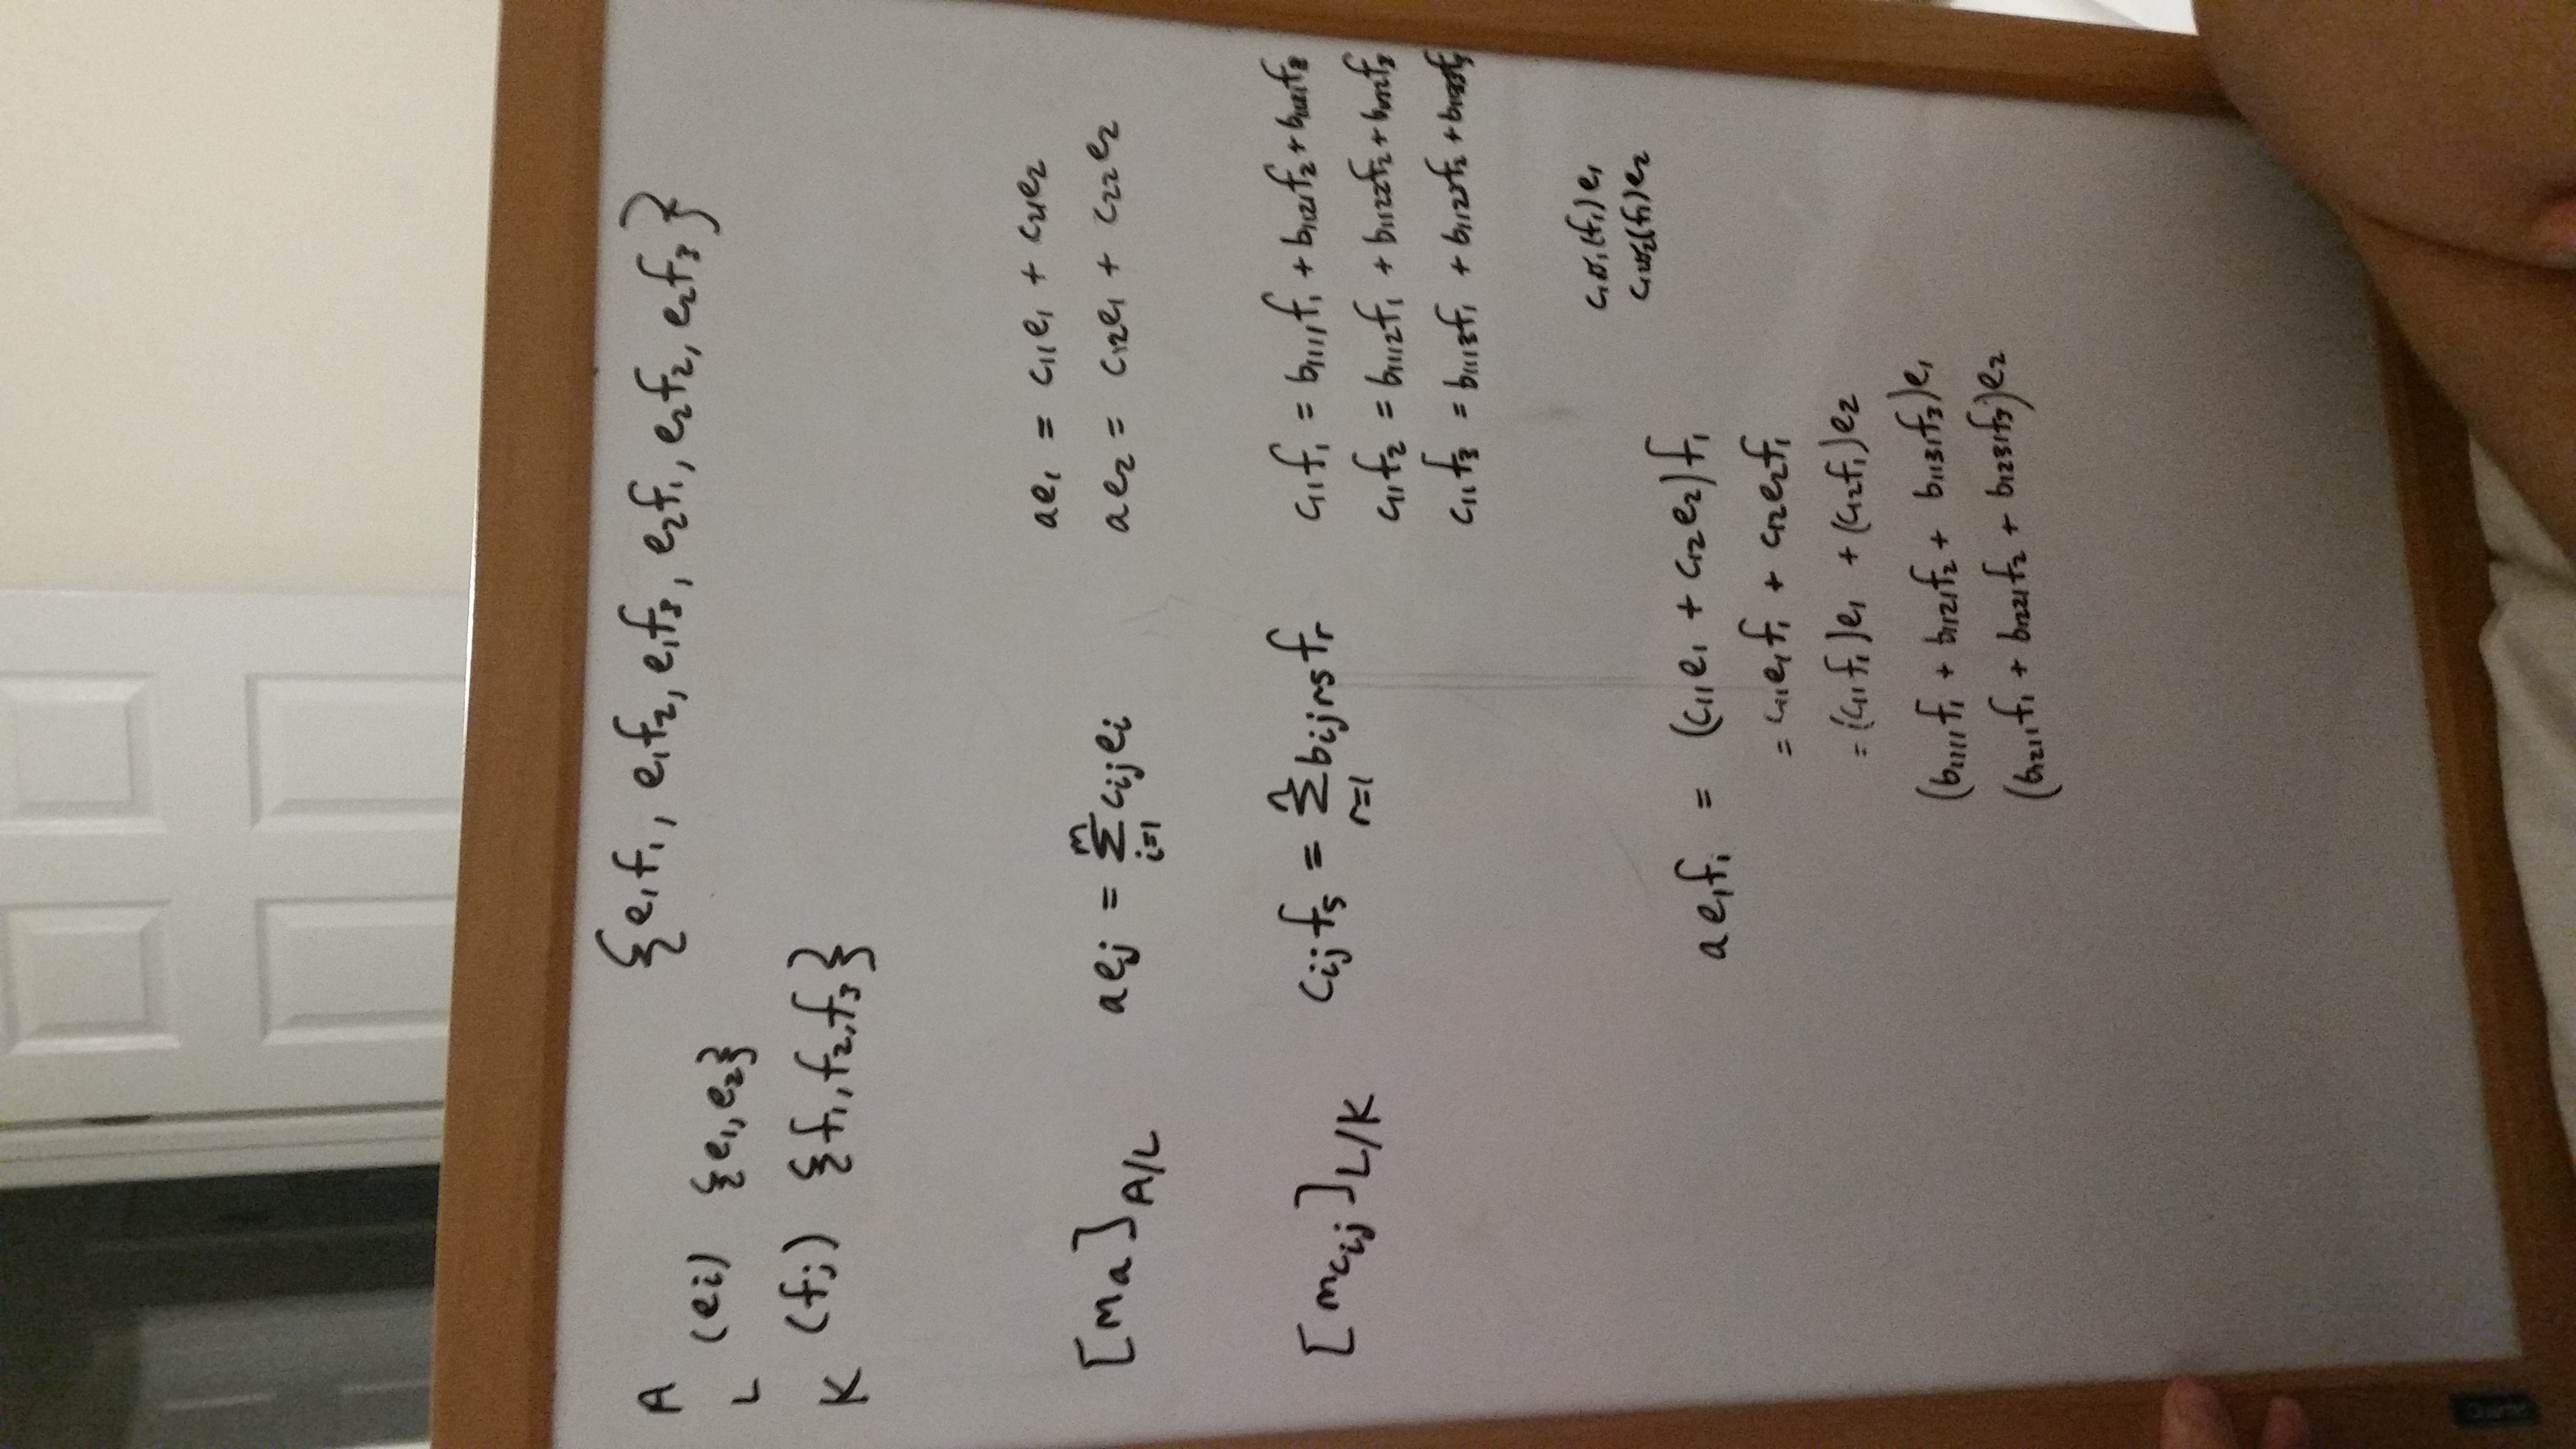 {e₁f₁, e₁f₂, e₁f₃, e₂f₁, e₂f₂, e₂f₃}
A
(ei) {e₁, e₂}
L
(fj) {f₁, f₂, f₃}
K
ae₁ = c₁₁e₁ + c₂₁e₂
[ma]A/L aej = Σ(i=1 to m) cijei ae₂ = c₁₂e₁ + c₂₂e₂
[mcij]L/K cijfs = Σ(r=1 to n) bijrsfr c₁₁f₁ = b₁₁₁₁f₁ + b₁₁₂₁f₂ +
c₁₁f₂ = b₁₁₁₂f₁ + b₁₁₂₂f₂ +
c₁₁f₃ = b₁₁₁₃f₁ + b₁₁₂₃f₂ +
(f₁)e₁
(f₁)e₂
ae₁f₁ = (c₁₁e₁ + c₁₂e₂)f₁
= c₁₁e₁f₁ + c₁₂e₂f₁
= (c₁₁f₁)e₁ + (c₁₂f₁)e₂
(b₁₁₁₁f₁ + b₁₁₂₁f₂ + b₁₁₃₁f₃)e₁
(b₁₂₁₁f₁ + b₁₂₂₁f₂ + b₁₂₃₁f₃)e₂